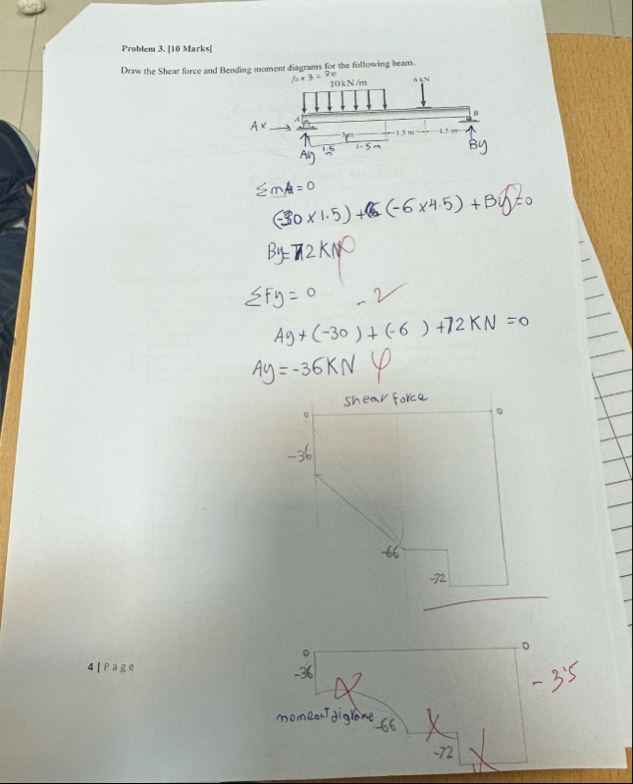 Problem 3. [10 Marks]
Draw the Shear force and Bending moment diagrams for the following beam.
10 x 3 = 30
10 kN/m
6 kN
A
B
Ax
1.5 m
1.5 m
Ay
1.5
1.5m
By
ΣmA = 0
(-30 x 1.5) + (-6 x 4.5) + By = 0
By = 72 KN
ΣFy = 0
-2
Ay + (-30) + (-6) + 72 KN = 0
Ay = -36 KN
shear force
0
0
-36
-66
-72
0
0
-36
-3.5
moment
-66
-72
4 | Page